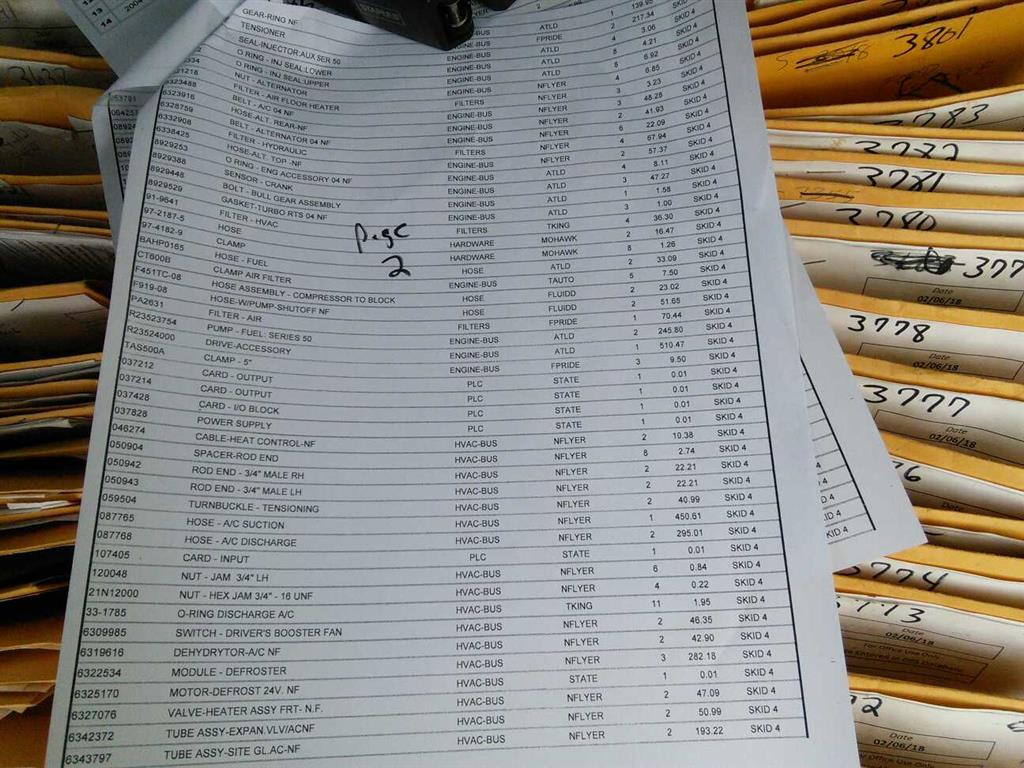 GEAR-RING NF ENGINE-BUS ATLD 1 139.95 SKID 4
TENSIONER ENGINE-BUS FPRIDE 2 217.34 SKID 4
SEAL-INJECTOR,AUX SER 50 ENGINE-BUS ATLD 4 3.06 SKID 4
O RING - INJ SEAL:LOWER ENGINE-BUS ATLD 4.21 SKID 4
O RING - INJ SEAL:UPPER ENGINE-BUS ATLD 8 6.92 SKID 4
NUT - ALTERNATOR ENGINE-BUS NFLYER 6.85 SKID 4
6323488 FILTER - AIR FLOOR HEATER FILTERS NFLYER 4 3.23 SKID 4
6323916 BELT - A/C 04 NF ENGINE-BUS NFLYER 3 48.28 SKID 4
6328759 HOSE-ALT. REAR-NF ENGINE-BUS NFLYER 2 41.93 SKID 4
6332908 BELT - ALTERNATOR 04 NF ENGINE-BUS NFLYER 6 22.09 SKID 4
6338425 FILTER - HYDRAULIC FILTERS NFLYER 4 67.94 SKID 4
8929253 HOSE-ALT. TOP -NF ENGINE-BUS NFLYER 2 57.37 SKID 4
8929388 O RING - ENG ACCESSORY 04 NF ENGINE-BUS ATLD 4 8.11 SKID 4
8929448 SENSOR - CRANK ENGINE-BUS ATLD 3 47.27 SKID 4
8929529 BOLT - BULL GEAR ASSEMBLY ENGINE-BUS ATLD 1 1.58 SKID 4
91-9641 GASKET-TURBO RTS 04 NF ENGINE-BUS ATLD 3 1.00 SKID 4
97-2187-5 FILTER - HVAC FILTERS TKING 4 36.30 SKID 4
97-4182-9 HOSE HARDWARE MOHAWK 2 16.47 SKID 4
BAHP0165 CLAMP HARDWARE MOHAWK 8 1.26 SKID 4
CT600B HOSE - FUEL HOSE ATLD 2 33.09 SKID 4
F451TC-08 CLAMP AIR FILTER ENGINE-BUS TAUTO 5 7.50 SKID 4
F919-08 HOSE ASSEMBLY - COMPRESSOR TO BLOCK HOSE FLUIDD 2 23.02 SKID 4
PA2631 HOSE-W/PUMP-SHUTOFF NF HOSE FLUIDD 2 51.65 SKID 4
R23523754 FILTER - AIR FILTERS FPRIDE 1 70.44 SKID 4
R23524000 PUMP - FUEL: SERIES 50 ENGINE-BUS ATLD 2 245.80 SKID 4
TAS500A DRIVE-ACCESSORY ENGINE-BUS ATLD 1 510.47 SKID 4
037212 CLAMP - 5" ENGINE-BUS FPRIDE 3 9.50 SKID 4
037214 CARD - OUTPUT PLC STATE 1 0.01 SKID 4
037428 CARD - OUTPUT PLC STATE 1 0.01 SKID 4
037828 CARD - I/O BLOCK PLC STATE 1 0.01 SKID 4
046274 POWER SUPPLY PLC STATE 1 0.01 SKID 4
050904 CABLE-HEAT CONTROL-NF HVAC-BUS NFLYER 2 10.38 SKID 4
050942 SPACER-ROD END HVAC-BUS NFLYER 8 2.74 SKID 4
050943 ROD END - 3/4" MALE RH HVAC-BUS NFLYER 2 22.21 SKID 4
059504 ROD END - 3/4" MALE LH HVAC-BUS NFLYER 2 22.21 SKID 4
087765 TURNBUCKLE - TENSIONING HVAC-BUS NFLYER 2 40.99 SKID 4
087768 HOSE - A/C SUCTION HVAC-BUS NFLYER 1 450.61 SKID 4
HOSE - A/C DISCHARGE HVAC-BUS NFLYER 2 295.01 SKID 4
107405 CARD - INPUT PLC STATE 1 0.01 SKID 4
120048 NUT - JAM 3/4" LH HVAC-BUS NFLYER 6 0.84 SKID 4
21N12000 NUT - HEX JAM 3/4" - 16 UNF HVAC-BUS NFLYER 4 0.22 SKID 4
33-1785 O-RING DISCHARGE A/C HVAC-BUS TKING 11 1.95 SKID 4
6309985 SWITCH - DRIVER'S BOOSTER FAN HVAC-BUS NFLYER 2 46.35 SKID 4
6319616 DEHYDRYTOR-A/C NF HVAC-BUS NFLYER 2 42.90 SKID 4
6322534 MODULE - DEFROSTER HVAC-BUS NFLYER 3 282.18 SKID 4
6325170 MOTOR-DEFROST 24V. NF HVAC-BUS STATE 1 0.01 SKID 4
6327076 VALVE-HEATER ASSY FRT- N.F. HVAC-BUS NFLYER 2 47.09 SKID 4
6342372 TUBE ASSY-EXPAN.VLV/ACNF HVAC-BUS NFLYER 2 50.99 SKID 4
6343797 TUBE ASSY-SITE GL.AC-NF HVAC-BUS NFLYER 2 193.22 SKID 4
Page
2
3801
3783
3782
3781
3780
377
Date
02/06/18
3778
Date
02/06/18
3777
Date
02/06/18
76
Date
3774
3773
02/06/18
For Office Use Only
Date
02/06/18